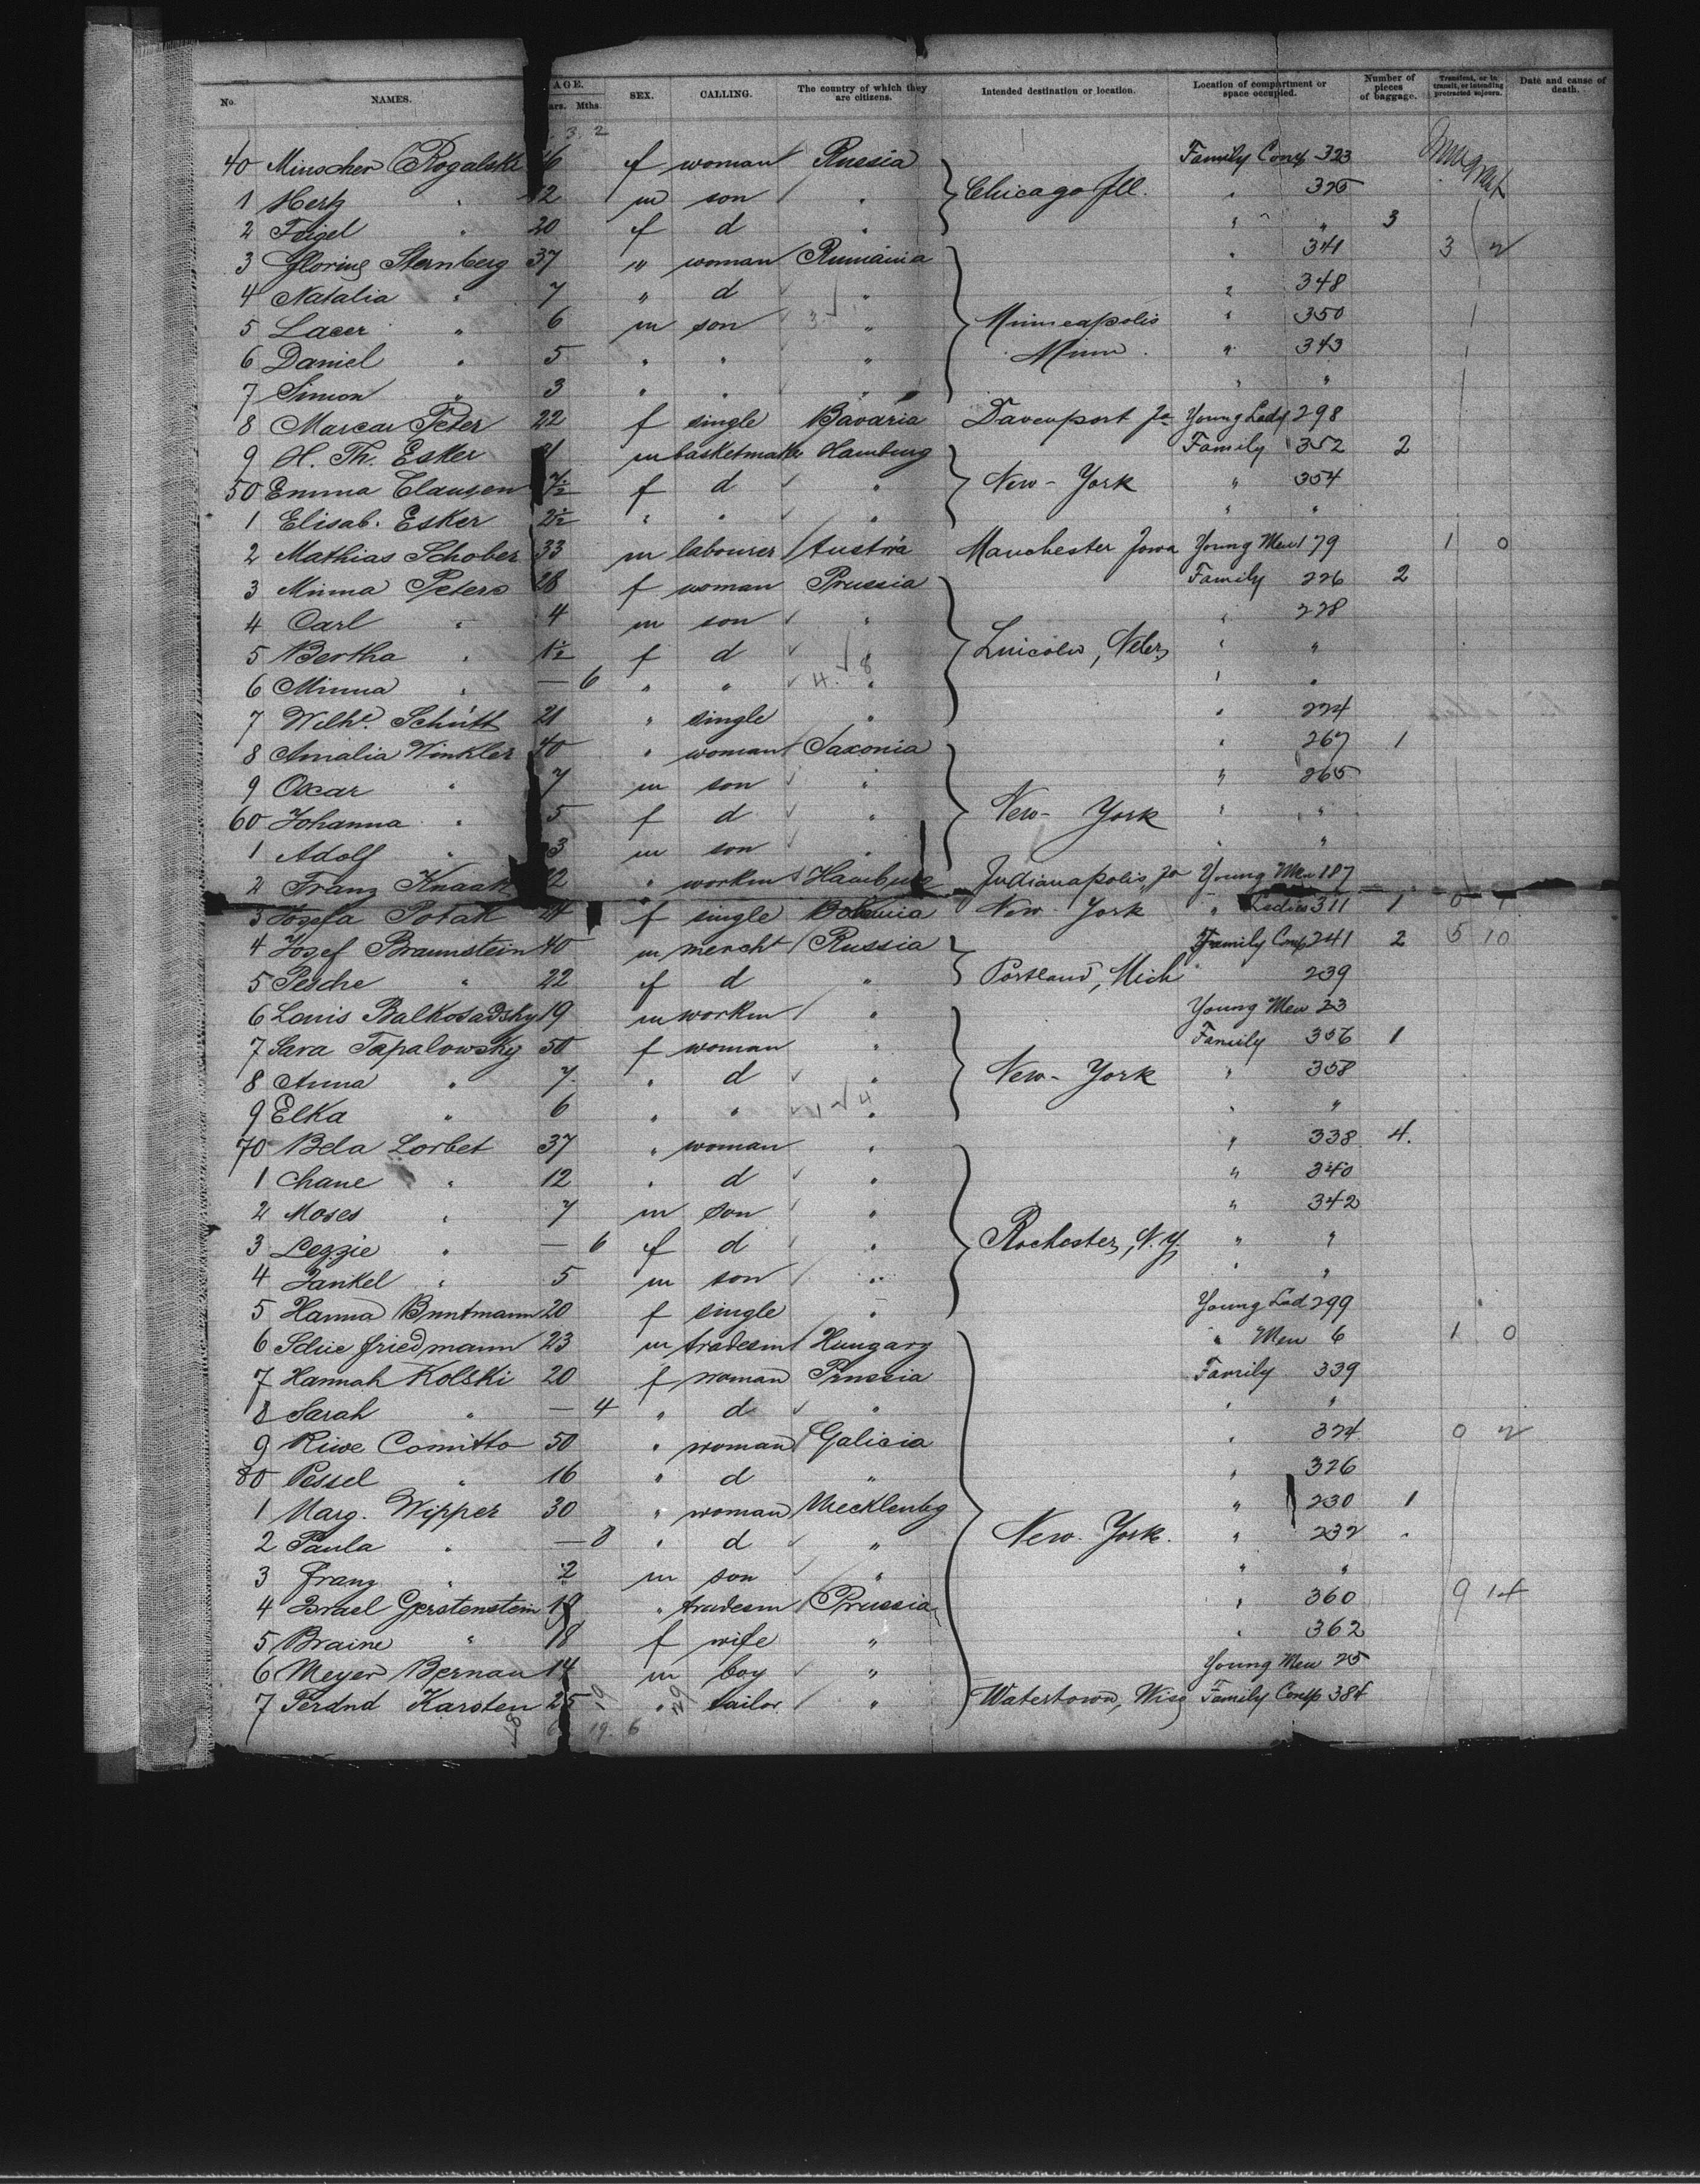 No. NAMES. AGE. SEX. CALLING. The country of which they are citizens. Intended destination or location. Location of compartment or space occupied. Number of pieces of baggage. Transient, or in transit, or intending protracted sojourn. Date and cause of death.
ars. Mths.
3. 2
40 Minschen Rogalski 6 f woman Russia Family Comp 323
1 Hertz " 12 m son " Chicago Ill. " 325
2 Feigel " 20 f d " " " 3
3 Glorius Sternberg 37 " woman Rumainia " 341 3 2
4 Natalia " 7 " d " " 348
5 Lacer " 6 m son 3 " Minneapolis " 350
6 Daniel " 5 " " " Minn. " 343
7 Simon " 3 " " " " "
8 Marcar Peter 22 f single Bavaria Davenport Ja Young Lady 298
9 H. Th. Esker 1 m basketmaker Hamburg Family 352 2
50 Emma Clausen 7½ f d " New-York " 354
1 Elisab. Esker 2½ " " " " "
2 Mathias Schober 33 m labourer Austria Manchester Jowa Young Men 179 1 0
3 Minna Peters 28 f woman Prussia Family 226 2
4 Carl " 4 m son " " 228
5 Bertha " 1½ f d " Lincoln, Nebr " "
6 Minna " — 6 " " 4. 8 " " "
7 Wilhe. Schütt 21 " single " " 224
8 Amalia Winkler 40 " woman Saxonia " 267 1
9 Oscar " 7 m son " " 265
60 Johanna " 5 f d " New-York " "
1 Adolf " 3 m son " " "
2 Franz Knaak 22 " workm Hamburg Judianapolis, Ja Young Men 187
3 Josefa Polak 24 f single Bohemia New York " Ladies 311 1 0 1
4 Josef Braunstein 40 m mercht Russia Family Comp 241 2 5 10
5 Pesche " 22 f d " Portland, Mich " 239
6 Louis Balkosadsky 19 m workm " Young Men 23
7 Sara Tapalowsky 50 f woman " Family 356 1
8 Anna " 7 " d " New-York " 358
9 Elka " 6 " " 1 4 " " "
70 Bela Lorbet 37 " woman " " 338 4.
1 Chane " 12 " d " " 340
2 Moses " 7 m son " " 342
3 Lezzie " — 6 f d " Rochester, N.Y. " "
4 Jankel " 5 m son " " "
5 Hanna Buntmann 20 f single " Young Lad 299
6 friedmann 23 m tradesm Hungary " Men 6 1 0
7 Hannah Kolski 20 f woman Prussia Family 339
8 Sarah " — 4 " d " " "
9 Riwe Comitto 50 " woman Galicia " 324 0 2
80 Pessel " 16 " d " " 326
1 Marg. Wipper 30 " woman Mecklenbg " 230 1
2 Paula " — 8 " d " New-York. " 232 "
3 Franz " 2 m son " " "
4 Israel Gerstenstein 19 " tradesm Prussia " 360 9 14
5 Braine " 18 f wife " " 362
6 Meyer Bernau 14 m boy " Young Men 25
7 Ferdnd Karsten 25 " tailor " Watertown, Wisc Family Comp 384
6 19. 6